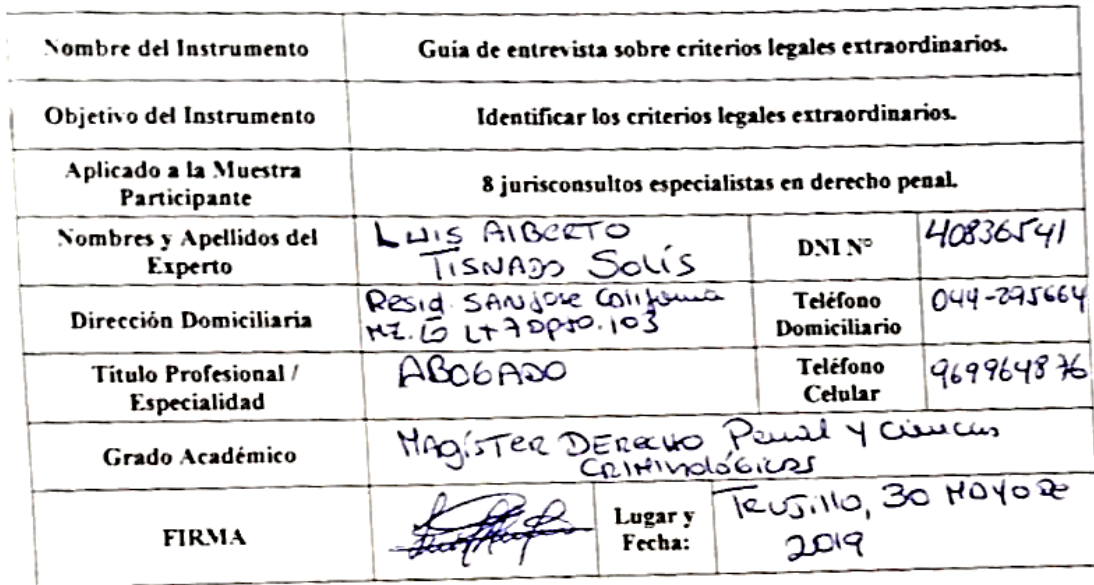 Nombre del Instrumento
Guia de entrevista sobre criterios legales extraordinarios.
Objetivo del Instrumento
Identificar los criterios legales extraordinarios.
Aplicado a la Muestra
Participante
8 jurisconsultos especialistas en derecho penal.
Nombres y Apellidos del
Experto
LUIS AlBERTO
TISNADO SOLÍS
DNI N°
40836541
Dirección Domiciliaria
Resid. SAN JOSE California
MZ. LT 7 DPTO. 103
Teléfono
Domiciliario
044-295664
Titulo Profesional /
Especialidad
ABOGADO
Teléfono
Celular
969964876
Grado Académico
MAGÍSTER DERECHO Penal y Ciencias
CRIMINOLÓGICAS
FIRMA
Lugar y
Fecha:
TRUJILLO, 30 MAYO DE
2019